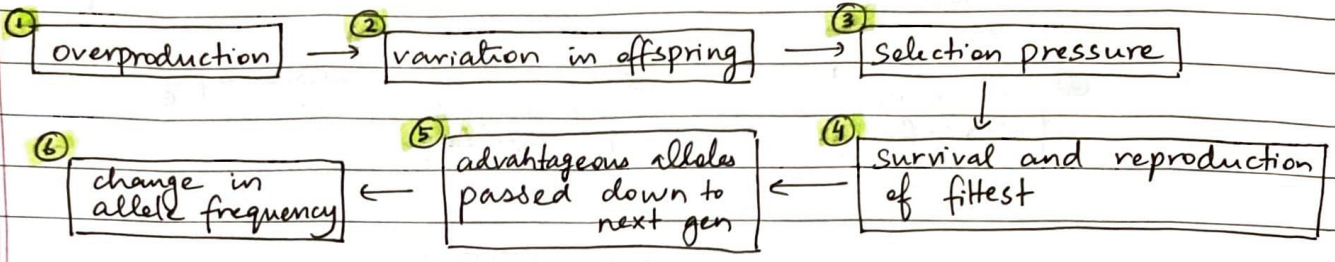 ① overproduction → ② variation in offspring → ③ Selection pressure
④ Survival and reproduction
of fittest
⑤ advantageous alleles
passed down to
next gen
⑥ change in
allele frequency